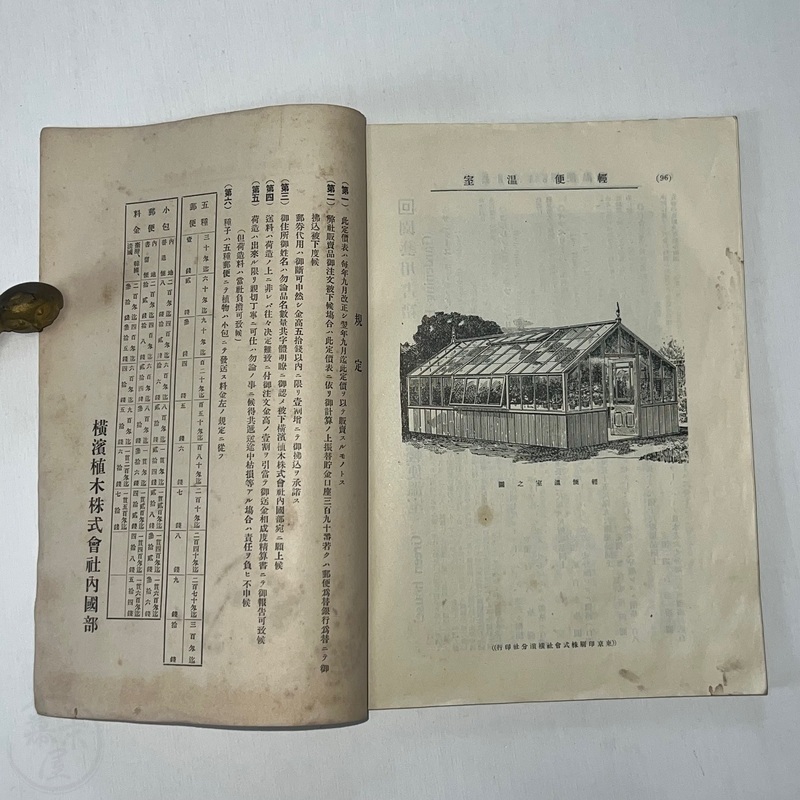 (96)
輕便溫室
輕便溫室之圖
(東京印刷株式會社橫濱分社印行)
規定
(第一) 此定價表ハ每年九月改正シ翌年九月迄此定價ヲ以テ販賣スルモノトス
(第二) 弊社販賣品御注文被下候場合ハ此定價表ニ依リ御計算ノ上振替貯金口座三百九十番若クハ郵便爲替銀行爲替ニテ御
拂込被下度候
郵券代用ハ御斷可申然シ金高五拾錢以內ニ限リ壹割增ニテ御拂込ヲ承諾ス
(第三) 御住所御姓名ハ勿論品名數量共字體明瞭ニ御認メ被下橫濱植木株式會社內國部宛ニ願上候
(第四) 送料ハ荷造ノ上ニ非レバ往々決定難致ニ付御注文金高ノ壹割ヲ引當テ御送金相成度精算書ニテ御報告可致候
(第五) 荷造ハ出來ル限リ親切丁寧ニ可仕ハ勿論ノ事ニ候得共遞送途中枯損等アル場合ハ責任ヲ負ヒ不申候
(但荷造料ハ當社負擔可致候)
(第六) 種子ハ五種郵便ニテ植物ハ小包ニテ發送ス料金左ノ規定ニ從フ
五種 三十匁迄 六十匁迄 九十匁迄 百二十匁迄 百五十匁迄 百八十匁迄 二百十匁迄 二百四十匁迄 二百七十匁迄 三百匁迄
郵便 壹錢 貳錢 參錢 四錢 五錢 六錢 七錢 八錢 九錢 拾錢
小包
郵便
料金
橫濱植木株式會社內國部